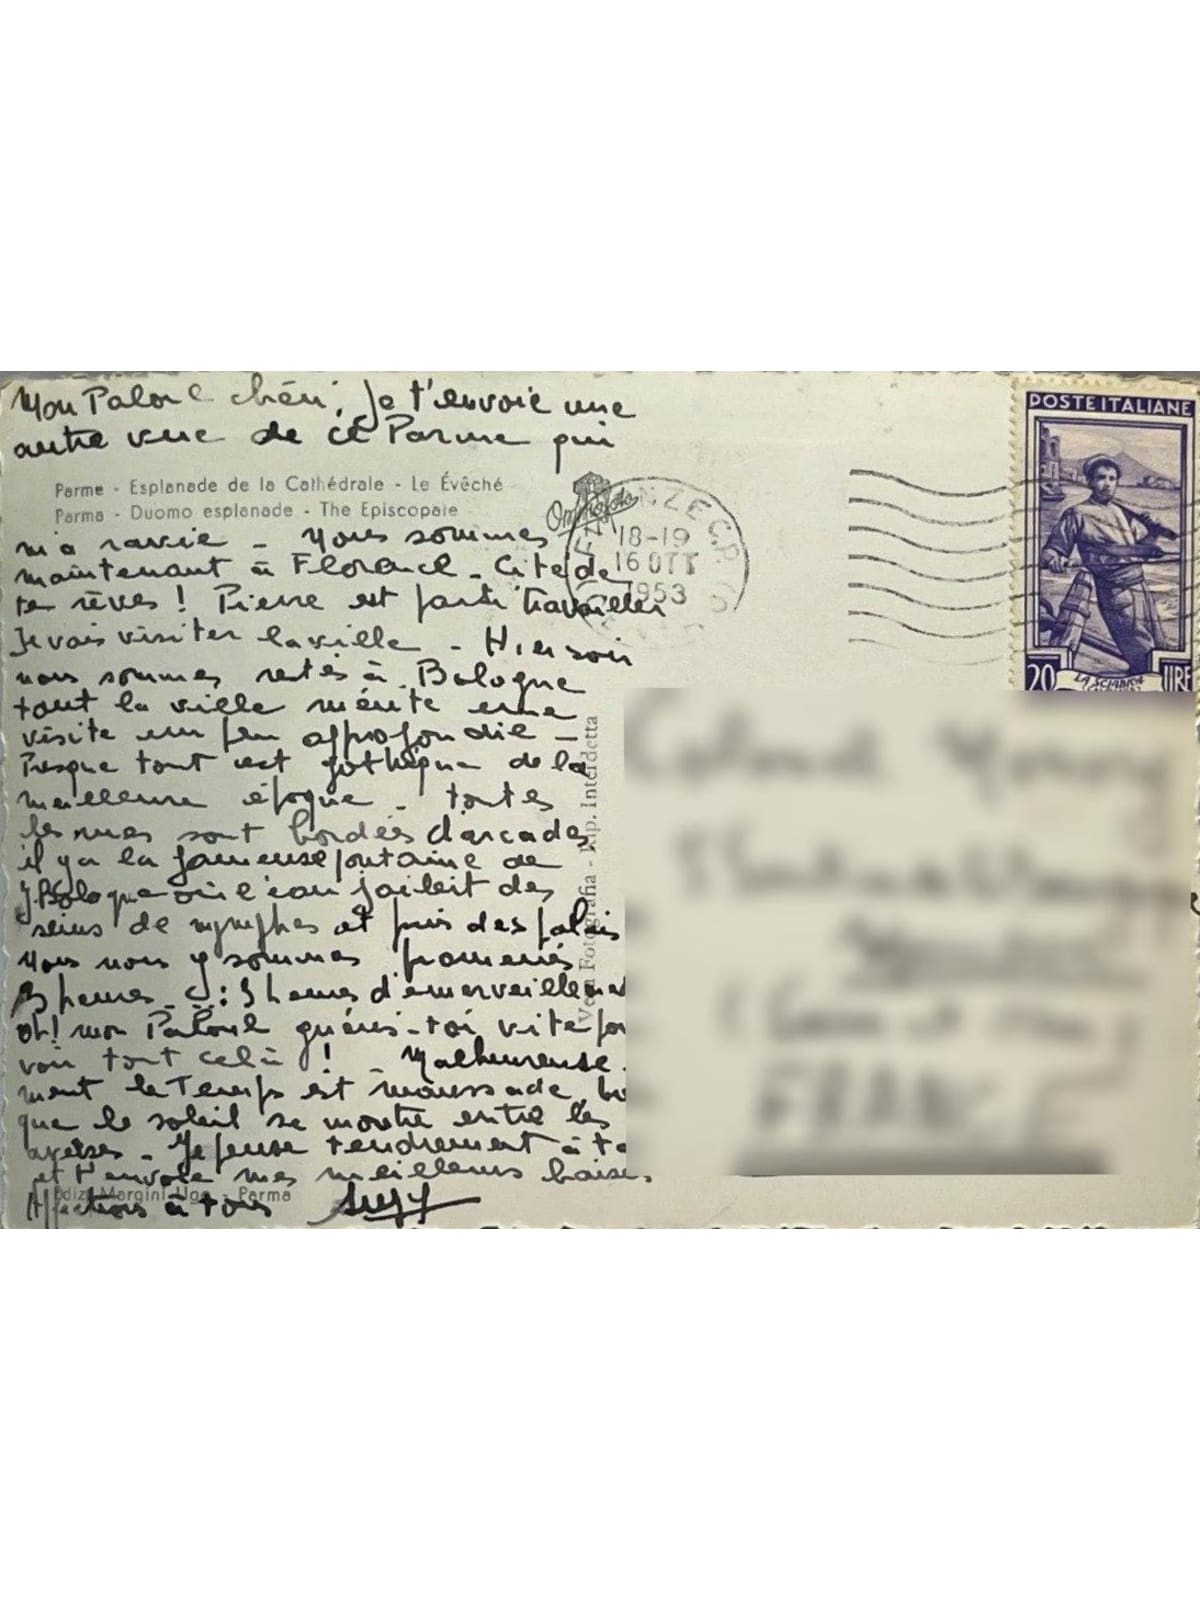 Mon Paloul chéri, je t'envoie une
autre vue de ce Parme qui
Parme - Esplanade de la Cathédrale - Le Évêché
Parma - Duomo esplanade - The Episcopaie
m'a ravie - Nous sommes
maintenant à Florence - Cité de
te rêves ! Pierre est parti travailler
Je vais visiter la ville - Hier soir
nous sommes restés à Bologne
tout la ville mérite une
visite un peu approfondie -
Presque tout est gothique de la
meilleure époque - toutes
les rues sont bordées d'arcades
il y a la fameuse fontaine de
Bologne où l'eau jaillit des
seins de nymphes et puis des palais
Nous nous y sommes promenés
3 heures : 3 heures d'émerveillement
oh! mon Paloul guéris-toi vite po
voir tout celà ! Malheureuse
ment le Temps est maussade, bi
que le soleil se montre entre les
averses - Je pense tendrement à to
et t'envoie mes meilleurs baisers
Affections à tous Suzy
Ediz. Margini Ugo - Parma
Vera Fotografia - Rip. Interdetta
18-19
16 OTT
1953
POSTE ITALIANE
20 LIRE
LA SCIABICA
FRANCE